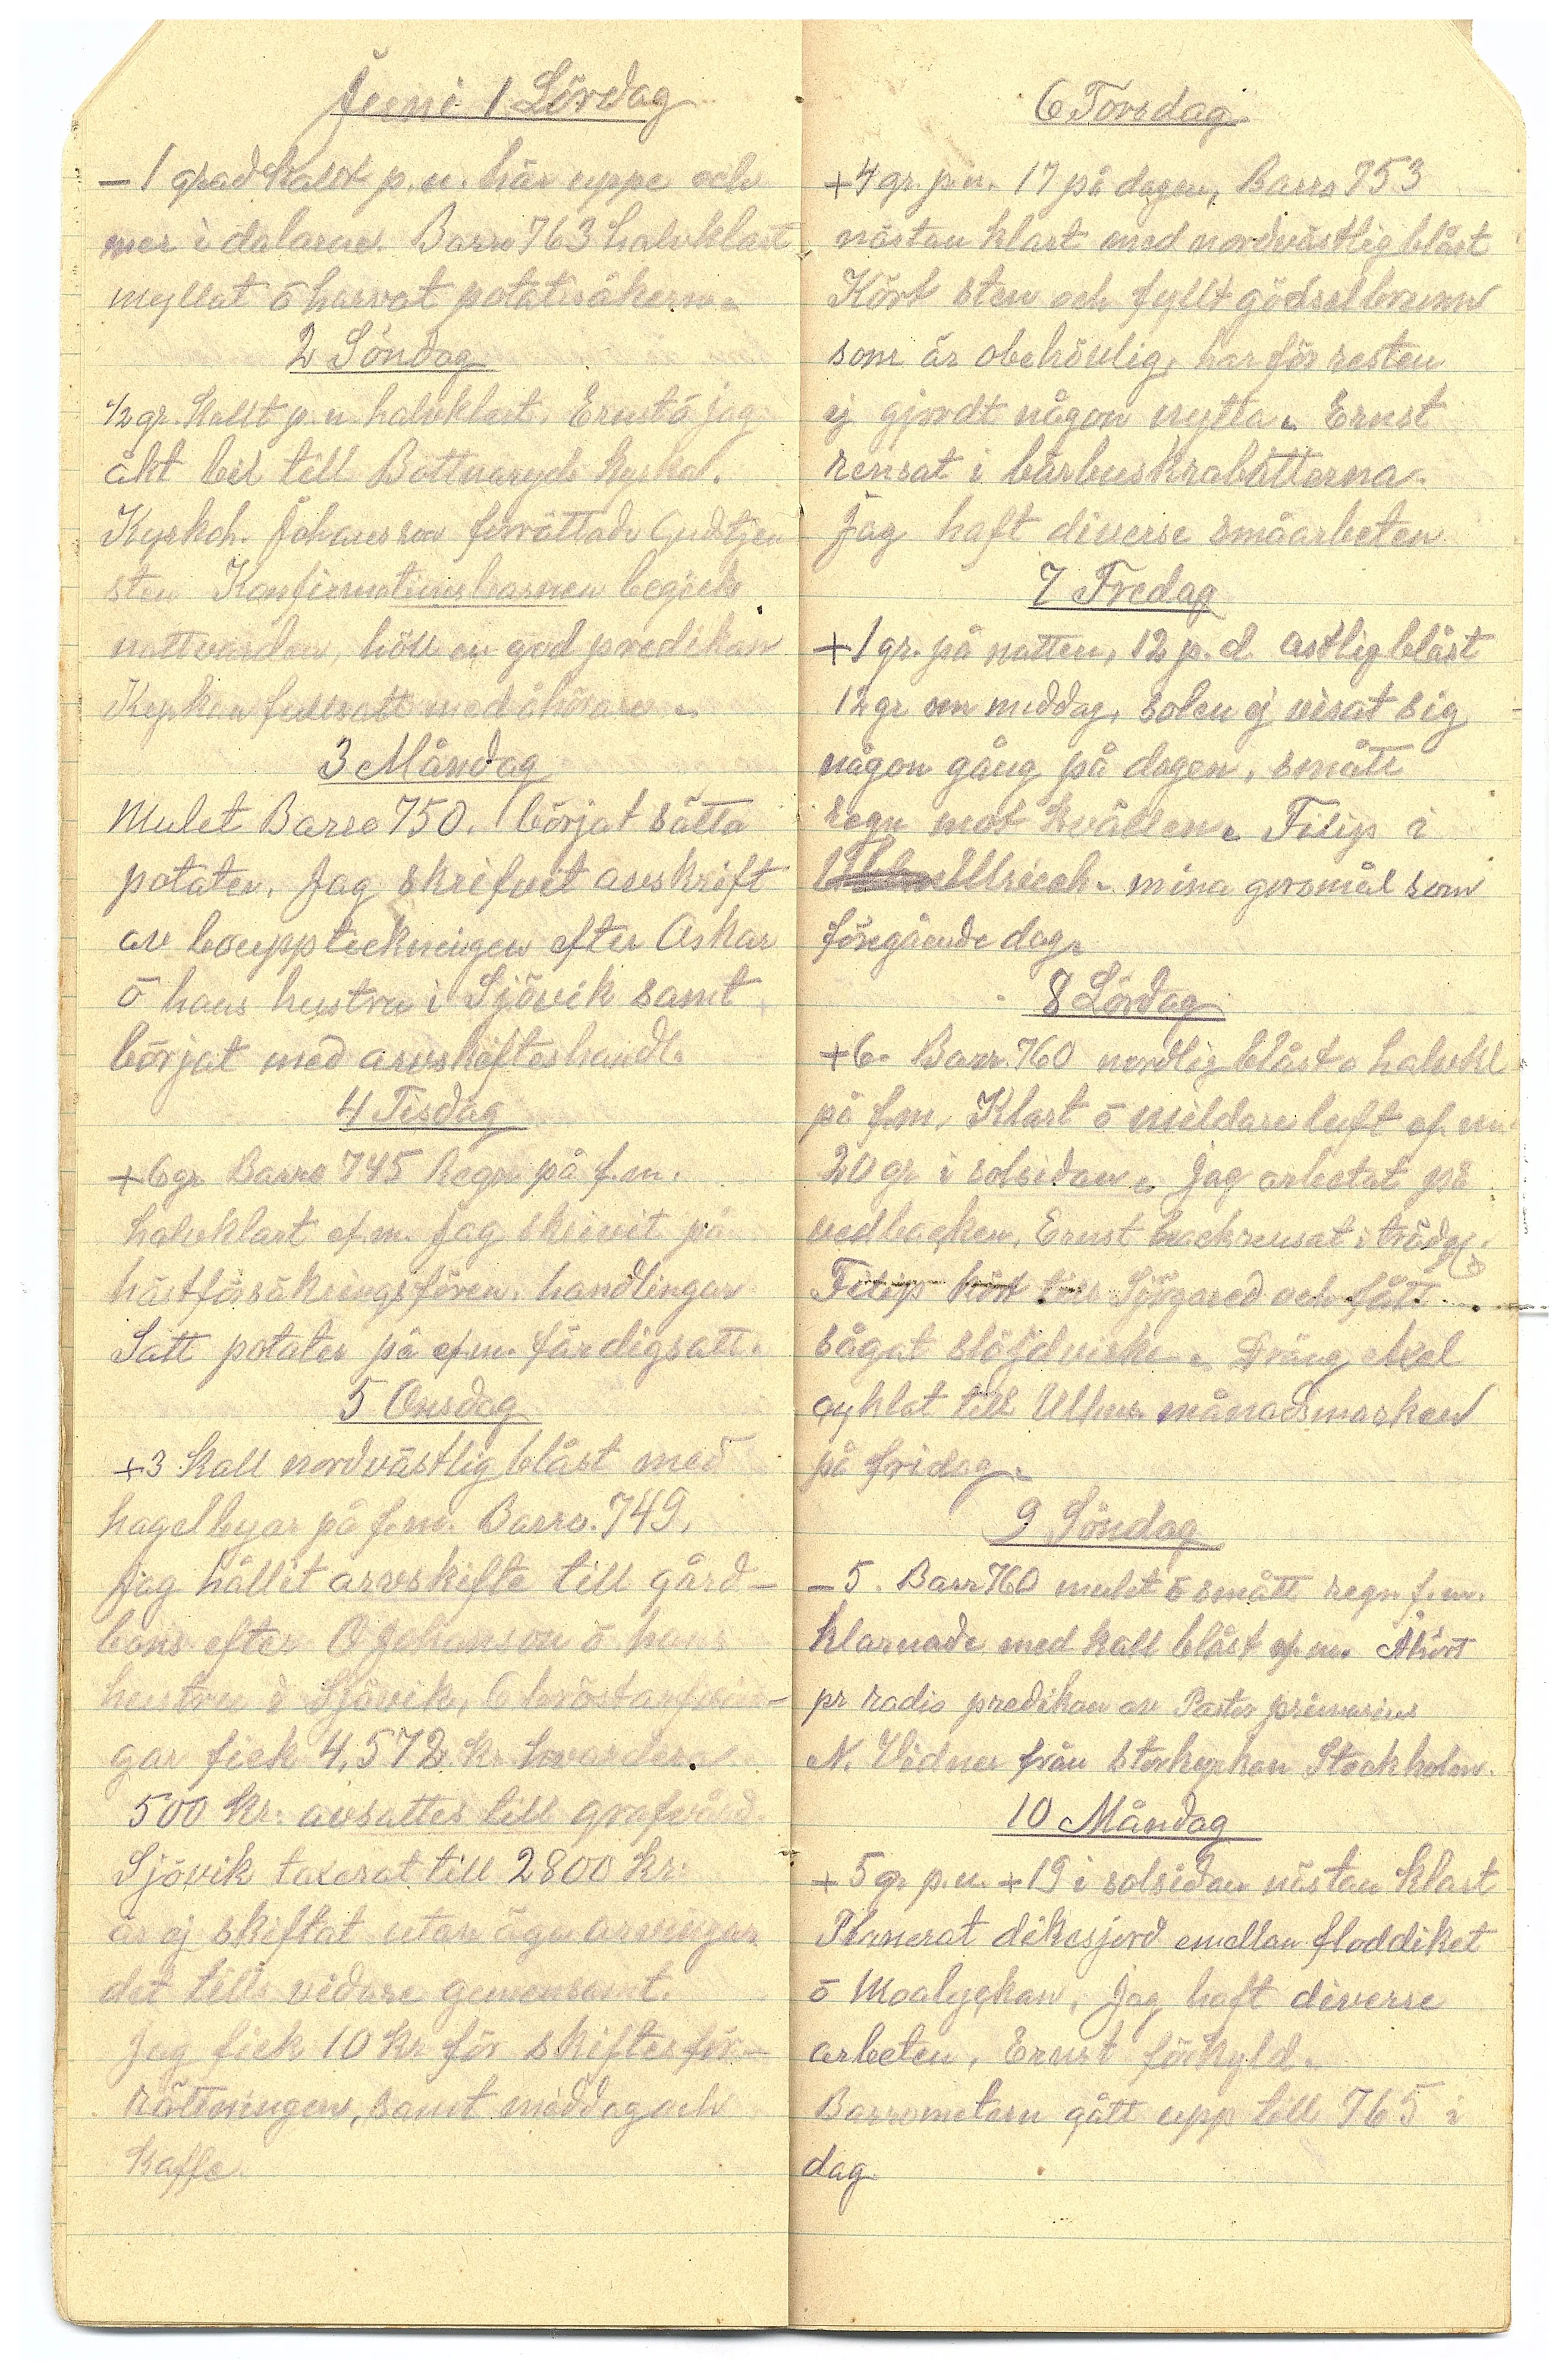 Juni 1 Lördag
– 1 grad kallt p.n. här uppe och
mer i dalarne. Barro 763 halvklart
myllat ō harvat potatisåkern.
2 Söndag
1/2 gr. kallt p.n. halvklart. Ernst ō jag
åkt bil till Bottnaryds kyrka.
Kyrkoh. Johansson förrättade Gudstjen
sten Konfirmationsbarnen begick
nattvarden, höll en god predikan
Kyrkan fullsatt med åhörare.
3 Måndag
Mulet Barro 750. börjat sätta
potater. Jag skrifvit avskrift
av bouppteckningen efter Oskar
ō hans hustru i Sjövik samt
börjat med arvskifteshandl.
4 Tisdag
+6 gr Barro 745 Regn på f.m.
halvklart ef.m. Jag skrivit på
hästförsäkringsfören. handlingar
Satt potater på ef.m. färdigsatt.
5 Onsdag
+3 Kall nordvästlig blåst med
hagelbyar på f.m. Barro. 749.
Jag hållit arvskifte till gård–
bons efter O Johanson ō hans
hustru i Sjövik, 6 bröstarfvin–
gar fick 4,572 kr. hvardera.
500 Kr: avsattes till grafvård.
Sjövik taxerat till 2800 Kr:
är ej skiftat utan äga arvingar
det tills vidare gemensamt.
Jag fick 10 Kr för skiftesför–
rättningen, samt middag och
Kaffe.
6 Torsdag
+4 gr. p.n. 17 på dagen, Barro 753
nästan klart med nordvästlig blåst
Kört sten och fyllt gödselbrunn
som är obehövlig, har för resten
ej gjordt någon nytta. Ernst
rensat i bärbuskrabatterna.
Jag haft diverse småarbeten
7 Fredag
+1 gr. på natten, 12 p.d. ostlig blåst
12 gr om middag, solen ej visat sig
någon gång på dagen, smått
regn mot kvällen. Filip i
Ulriceh. mina göromål som
föregående dag.
8 Lördag
+6. Barr. 760 nordlig blåst. halvkl
på f.m. Klart ō mildare luft ef.m.
20 gr i solsidan. Jag arbetat på
vedbacken, Ernst hackrensat i trädg.
Filip kört till Sjögared och fått
sågat slöjdvirke. Dräng Axel
cyklat till Ulhms. månadsmarken
på fridag.
9 Söndag
–5. Barr 760 mulet ō smått regn f.m.
klarnade med kall blåst ef.m. Åhört
pr radio predikan av Pastor primarius
N. Vidner från storkyrkan Stockholm.
10 Måndag
+5 gr p.n. +19 i solsidan nästan klart
Planerat dikesjord emellan floddiket
ō Moalyckan, Jag haft diverse
arbeten, Ernst förkyld.
Barrometern gått upp till 765 i
dag